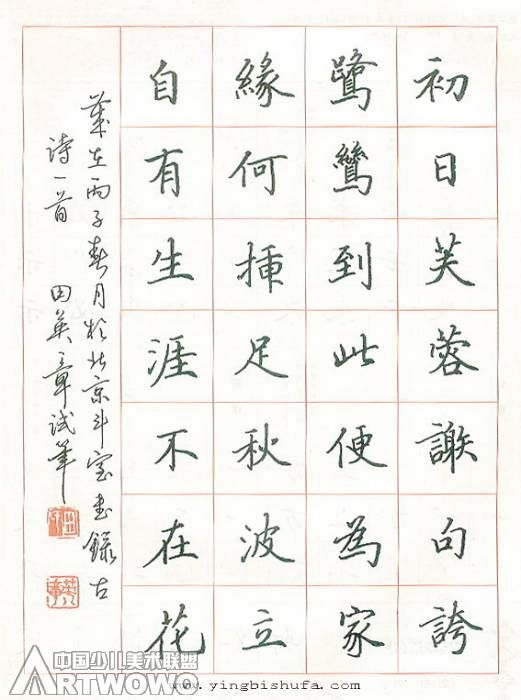 初日芙蓉謝句誇
鷺鷥到此便為家
緣何插足秋波立
自有生涯不在花
歲在丙子春月於北京斗室書錄古
诗一首 田英章试筆
中国少儿美术联盟
ARTWOWO
www.yingbishufa.com